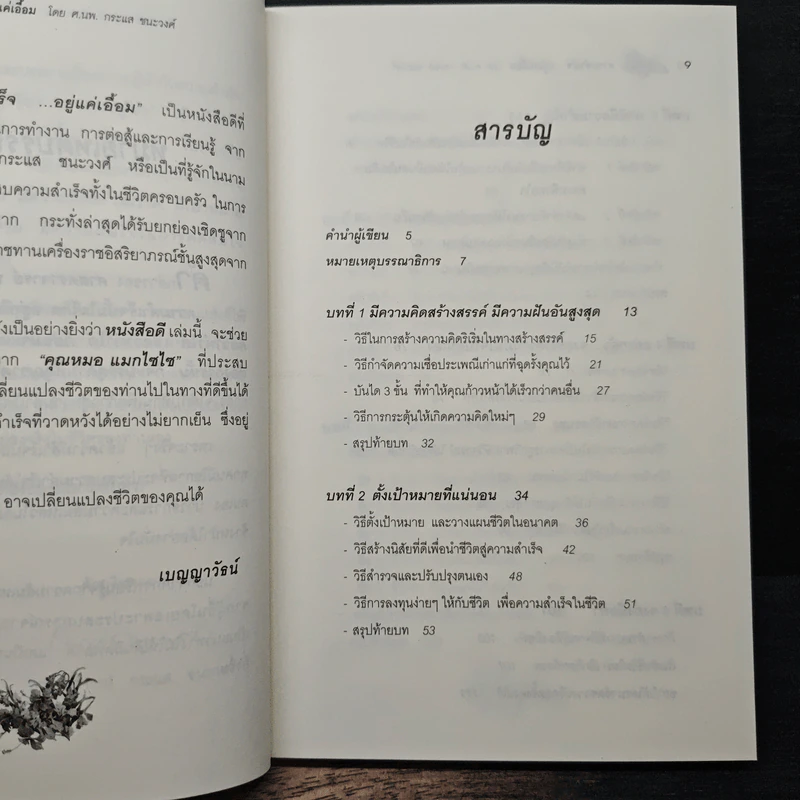 ค่เอื้อม โดย ศ.นพ. กระแส ชนะวงศ์
ร็จ ...อยู่แค่เอื้อม" เป็นหนังสือดีที่
การทำงาน การต่อสู้และการเรียนรู้ จาก
กระแส ชนะวงศ์ หรือเป็นที่รู้จักในนาม
บความสำเร็จทั้งในชีวิตครอบครัว ในการ
าก กระทั่งล่าสุดได้รับยกย่องเชิดชูจาก
ราชทานเครื่องราชอิสริยาภรณ์ชั้นสูงสุดจาก
ังเป็นอย่างยิ่งว่า หนังสือดี เล่มนี้ จะช่วย
าก "คุณหมอ แมกไซไซ" ที่ประสบ
ปลี่ยนแปลงชีวิตของท่านไปในทางที่ดีขึ้นได้
ำเร็จที่วาดหวังได้อย่างไม่ยากเย็น ซึ่งอยู่
อาจเปลี่ยนแปลงชีวิตของคุณได้
เบญญาวัธน์
9
สารบัญ
คำนำผู้เขียน 5
หมายเหตุบรรณาธิการ 7
บทที่ 1 มีความคิดสร้างสรรค์ มีความฝันอันสูงสุด 13
- วิธีในการสร้างความคิดริเริ่มในทางสร้างสรรค์ 15
- วิธีกำจัดความเชื่อประเพณีเก่าแก่ที่ฉุดรั้งคุณไว้ 21
- บันได 3 ขั้น ที่ทำให้คุณก้าวหน้าได้เร็วกว่าคนอื่น 27
- วิธีการกระตุ้นให้เกิดความคิดใหม่ๆ 29
- สรุปท้ายบท 32
บทที่ 2 ตั้งเป้าหมายที่แน่นอน 34
- วิธีตั้งเป้าหมาย และวางแผนชีวิตในอนาคต 36
- วิธีสร้างนิสัยที่ดีเพื่อนำชีวิตสู่ความสำเร็จ 42
- วิธีสำรวจและปรับปรุงตนเอง 48
- วิธีการลงทุนง่ายๆ ให้กับชีวิต เพื่อความสำเร็จในชีวิต 51
- สรุปท้ายบท 53